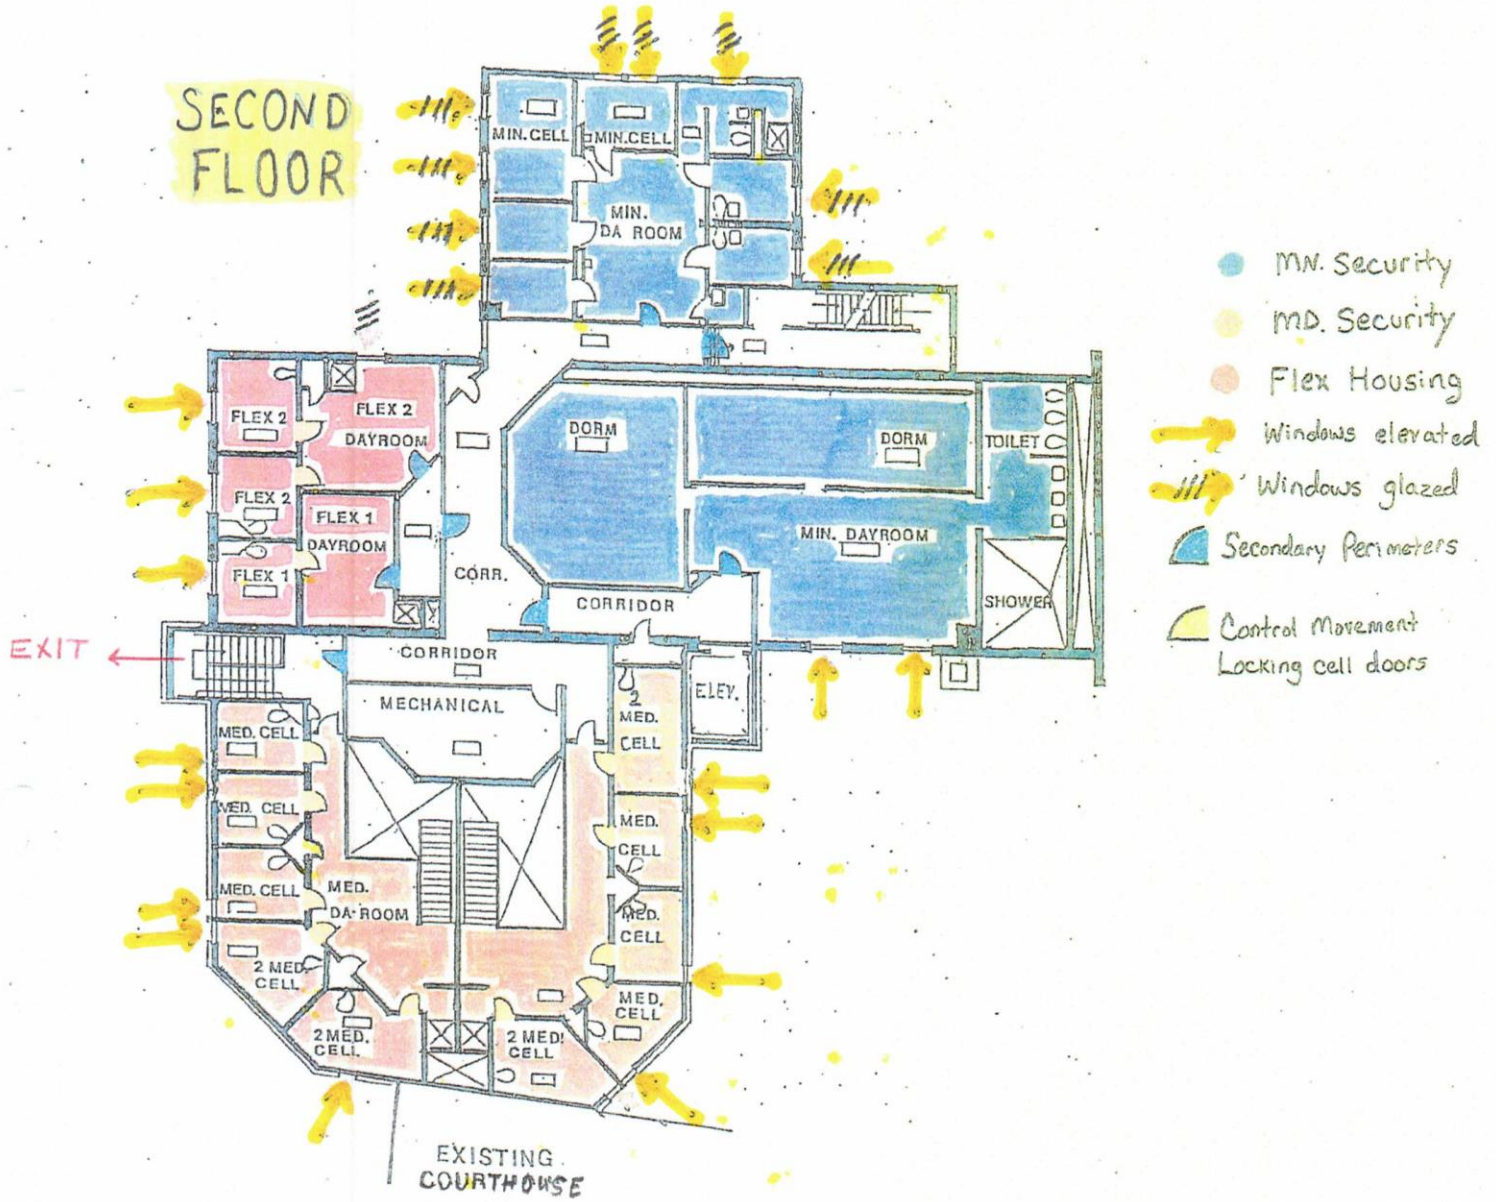 SECOND
FLOOR
MIN. CELL
MIN. CELL
MIN.
DA ROOM
FLEX 2
FLEX 2
DAYROOM
FLEX 2
FLEX 1
DAYROOM
FLEX 1
DORM
DORM
TOILET
MIN. DAYROOM
CORR.
CORRIDOR
SHOWER
EXIT
CORRIDOR
MECHANICAL
ELEV.
2
MED.
CELL
MED. CELL
MED. CELL
MED.
CELL
MED. CELL
MED.
DA ROOM
MED.
CELL
2 MED.
CELL
MED.
CELL
2 MED.
CELL
2 MED.
CELL
EXISTING
COURTHOUSE
MN. Security
MD. Security
Flex Housing
Windows elevated
Windows glazed
Secondary Perimeters
Control Movement
Locking cell doors